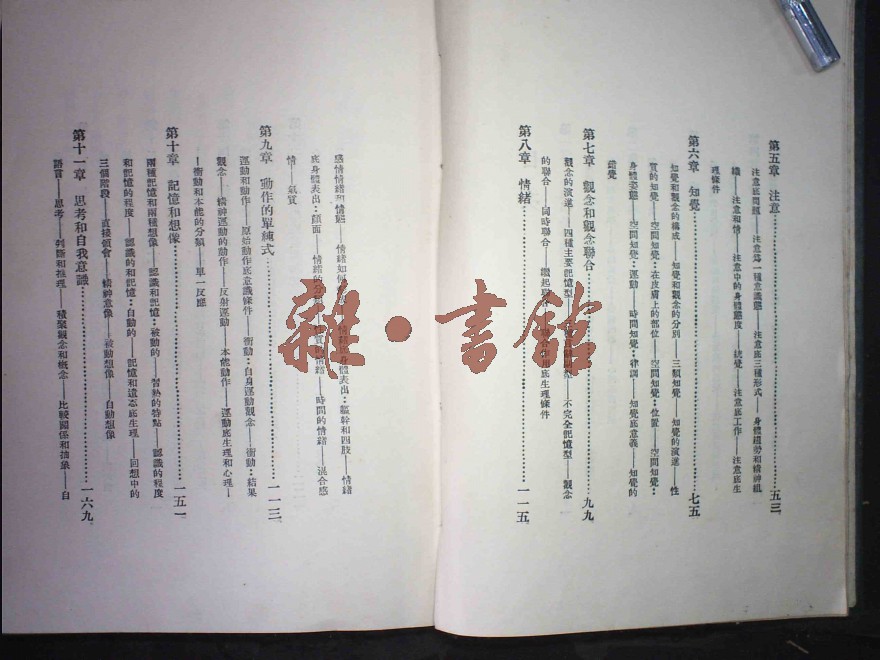 第五章 注意……五三
注意底問題——注意爲一種意識態——注意底三種形式——身體趨勢和精神組
織——注意和情——注意中的身體態度——統覺——注意底工作——注意底生
理條件
第六章 知覺……七五
知覺和觀念的構成——知覺和觀念的分別——三類知覺——知覺的演進——性
質的知覺——空間知覺：在皮膚上的部位——空間知覺：位置——空間知覺：
身體姿態——空間知覺：運動——時間知覺：律調——知覺底意義——知覺的
錯覺
第七章 觀念和觀念聯合……九九
觀念的演進——四種主要記憶型——不完全記憶型——觀念
的聯合——同時聯合——繼起聯合——聯合作用底生理條件
第八章 情緒……一一五
感情情緒和情態——情緒如何——情緒底身體表出：軀幹和四肢——情緒
底身體表出：顏面——情緒的分類——性質的情緒——時間的情緒——混合感
情——氣質
第九章 動作的單純式……一一三
運動和動作——原始動作底意識條件——衝動：自身運動觀念——衝動：結果
觀念——精神運動的動作——反射運動——本能動作——運動底生理和心理—
—衝動和本能的分類——單一反應
第十章 記憶和想像……一五一
兩種記憶和兩種想像——認識和記憶：被動的——習熟的特點——認識的程度
和記憶的程度——認識的和記憶：自動的——記憶和遺忘底生理——回想中的
三個階段——直接領會——精神意像——被動想像——自動想像
第十一章 思考和自我意識……一六九
語言——思考——判斷和推理——積聚觀念和概念——比較關係和抽象——自
雜·書館